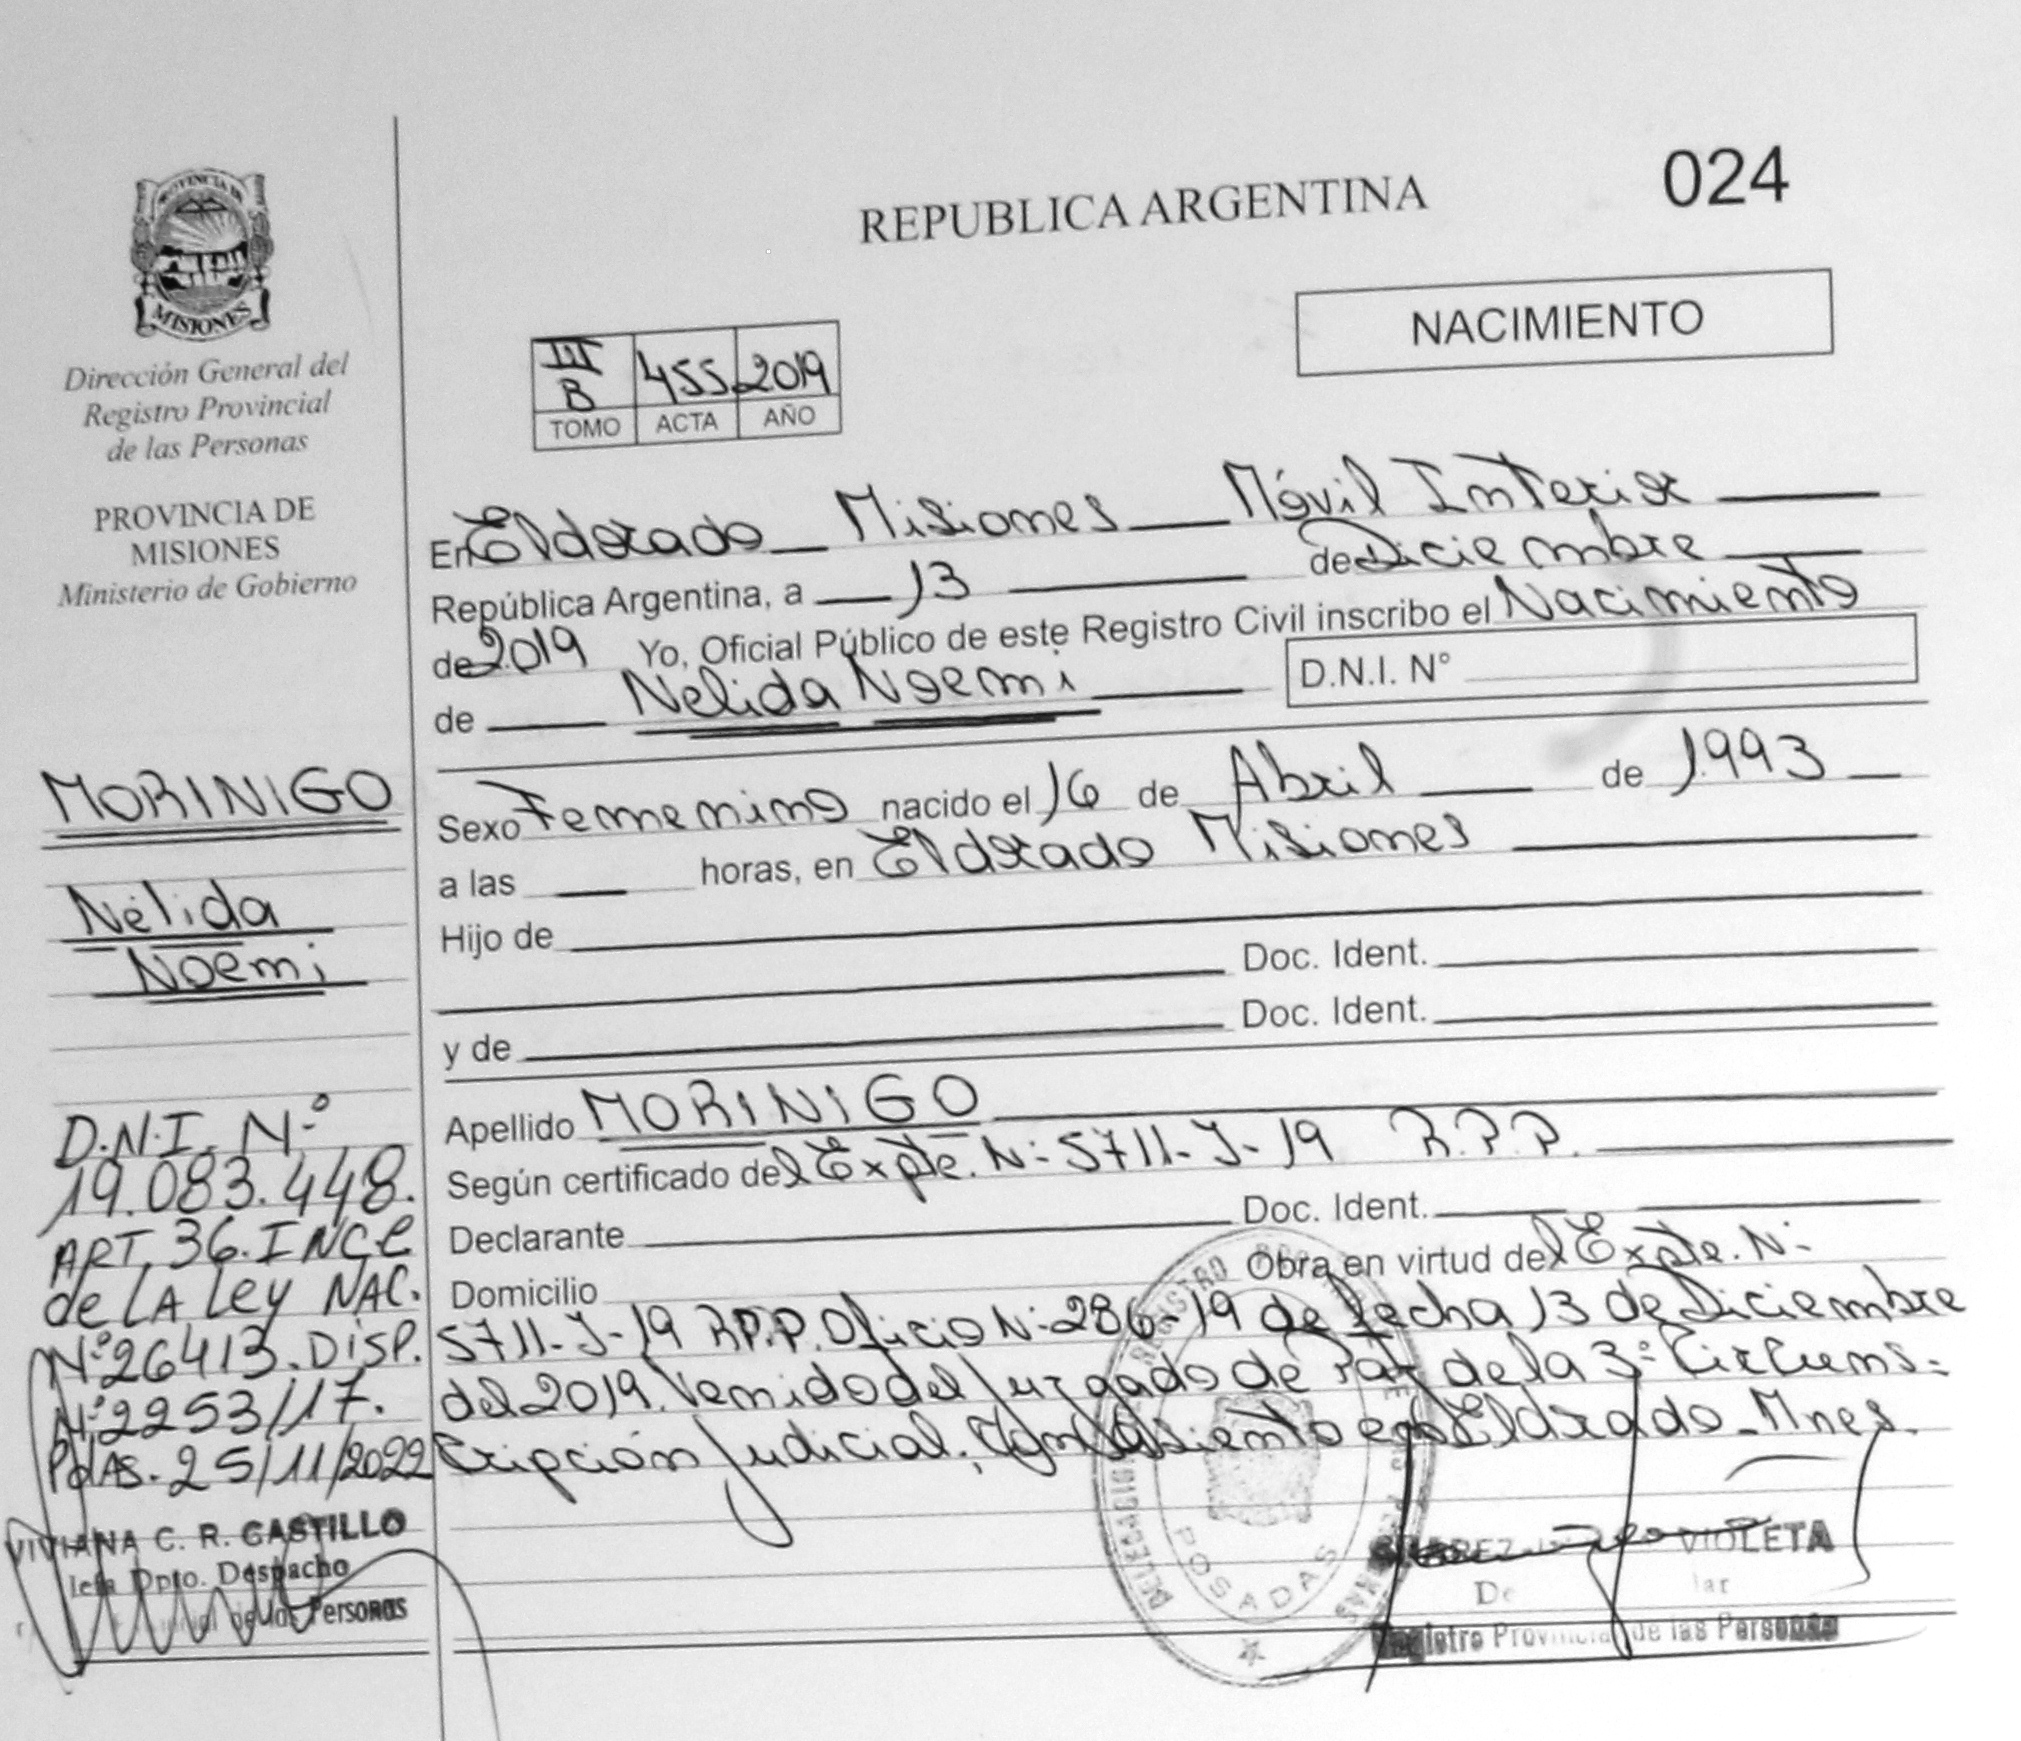 PROVINCIA DE
MISIONES
Dirección General del
Registro Provincial
de las Personas
PROVINCIA DE
MISIONES
Ministerio de Gobierno
MORINIGO
Nélida
Noemi
D.N.I. N°
19.083.448.
ART. 36. INC C
de LA Ley NAC.
N° 26413. DISP.
N° 2253/17.
PdAS. 25/11/2022
VIVIANA C. R. CASTILLO
Jefa Dpto. Despacho
de las Personas
REPUBLICA ARGENTINA
024
NACIMIENTO
III B 455 2019
TOMO ACTA AÑO
En Eldorado Misiones Móvil Interior
República Argentina, a 13 de Diciembre
de 2019 Yo, Oficial Público de este Registro Civil inscribo el Nacimiento
de Nelida Noemi D.N.I. N°
Sexo Femenino nacido el 16 de Abril de 1993
a las horas, en Eldorado Misiones
Hijo de
Doc. Ident.
y de Doc. Ident.
Apellido MORINIGO
Según certificado del Expte. N: 5711-J-19 R.P.P.
Declarante Doc. Ident.
Domicilio Obra en virtud del Expte. N:
5711-J-19 R.P.P. Oficio N: 286-19 de fecha 13 de Diciembre
del 2019. Venido del Juzgado de Paz de la 3° Circuns-
cripción Judicial, Con Asiento en Eldorado - Mnes.
POSADAS
VIOLETA
Registro Provincial de las Personas